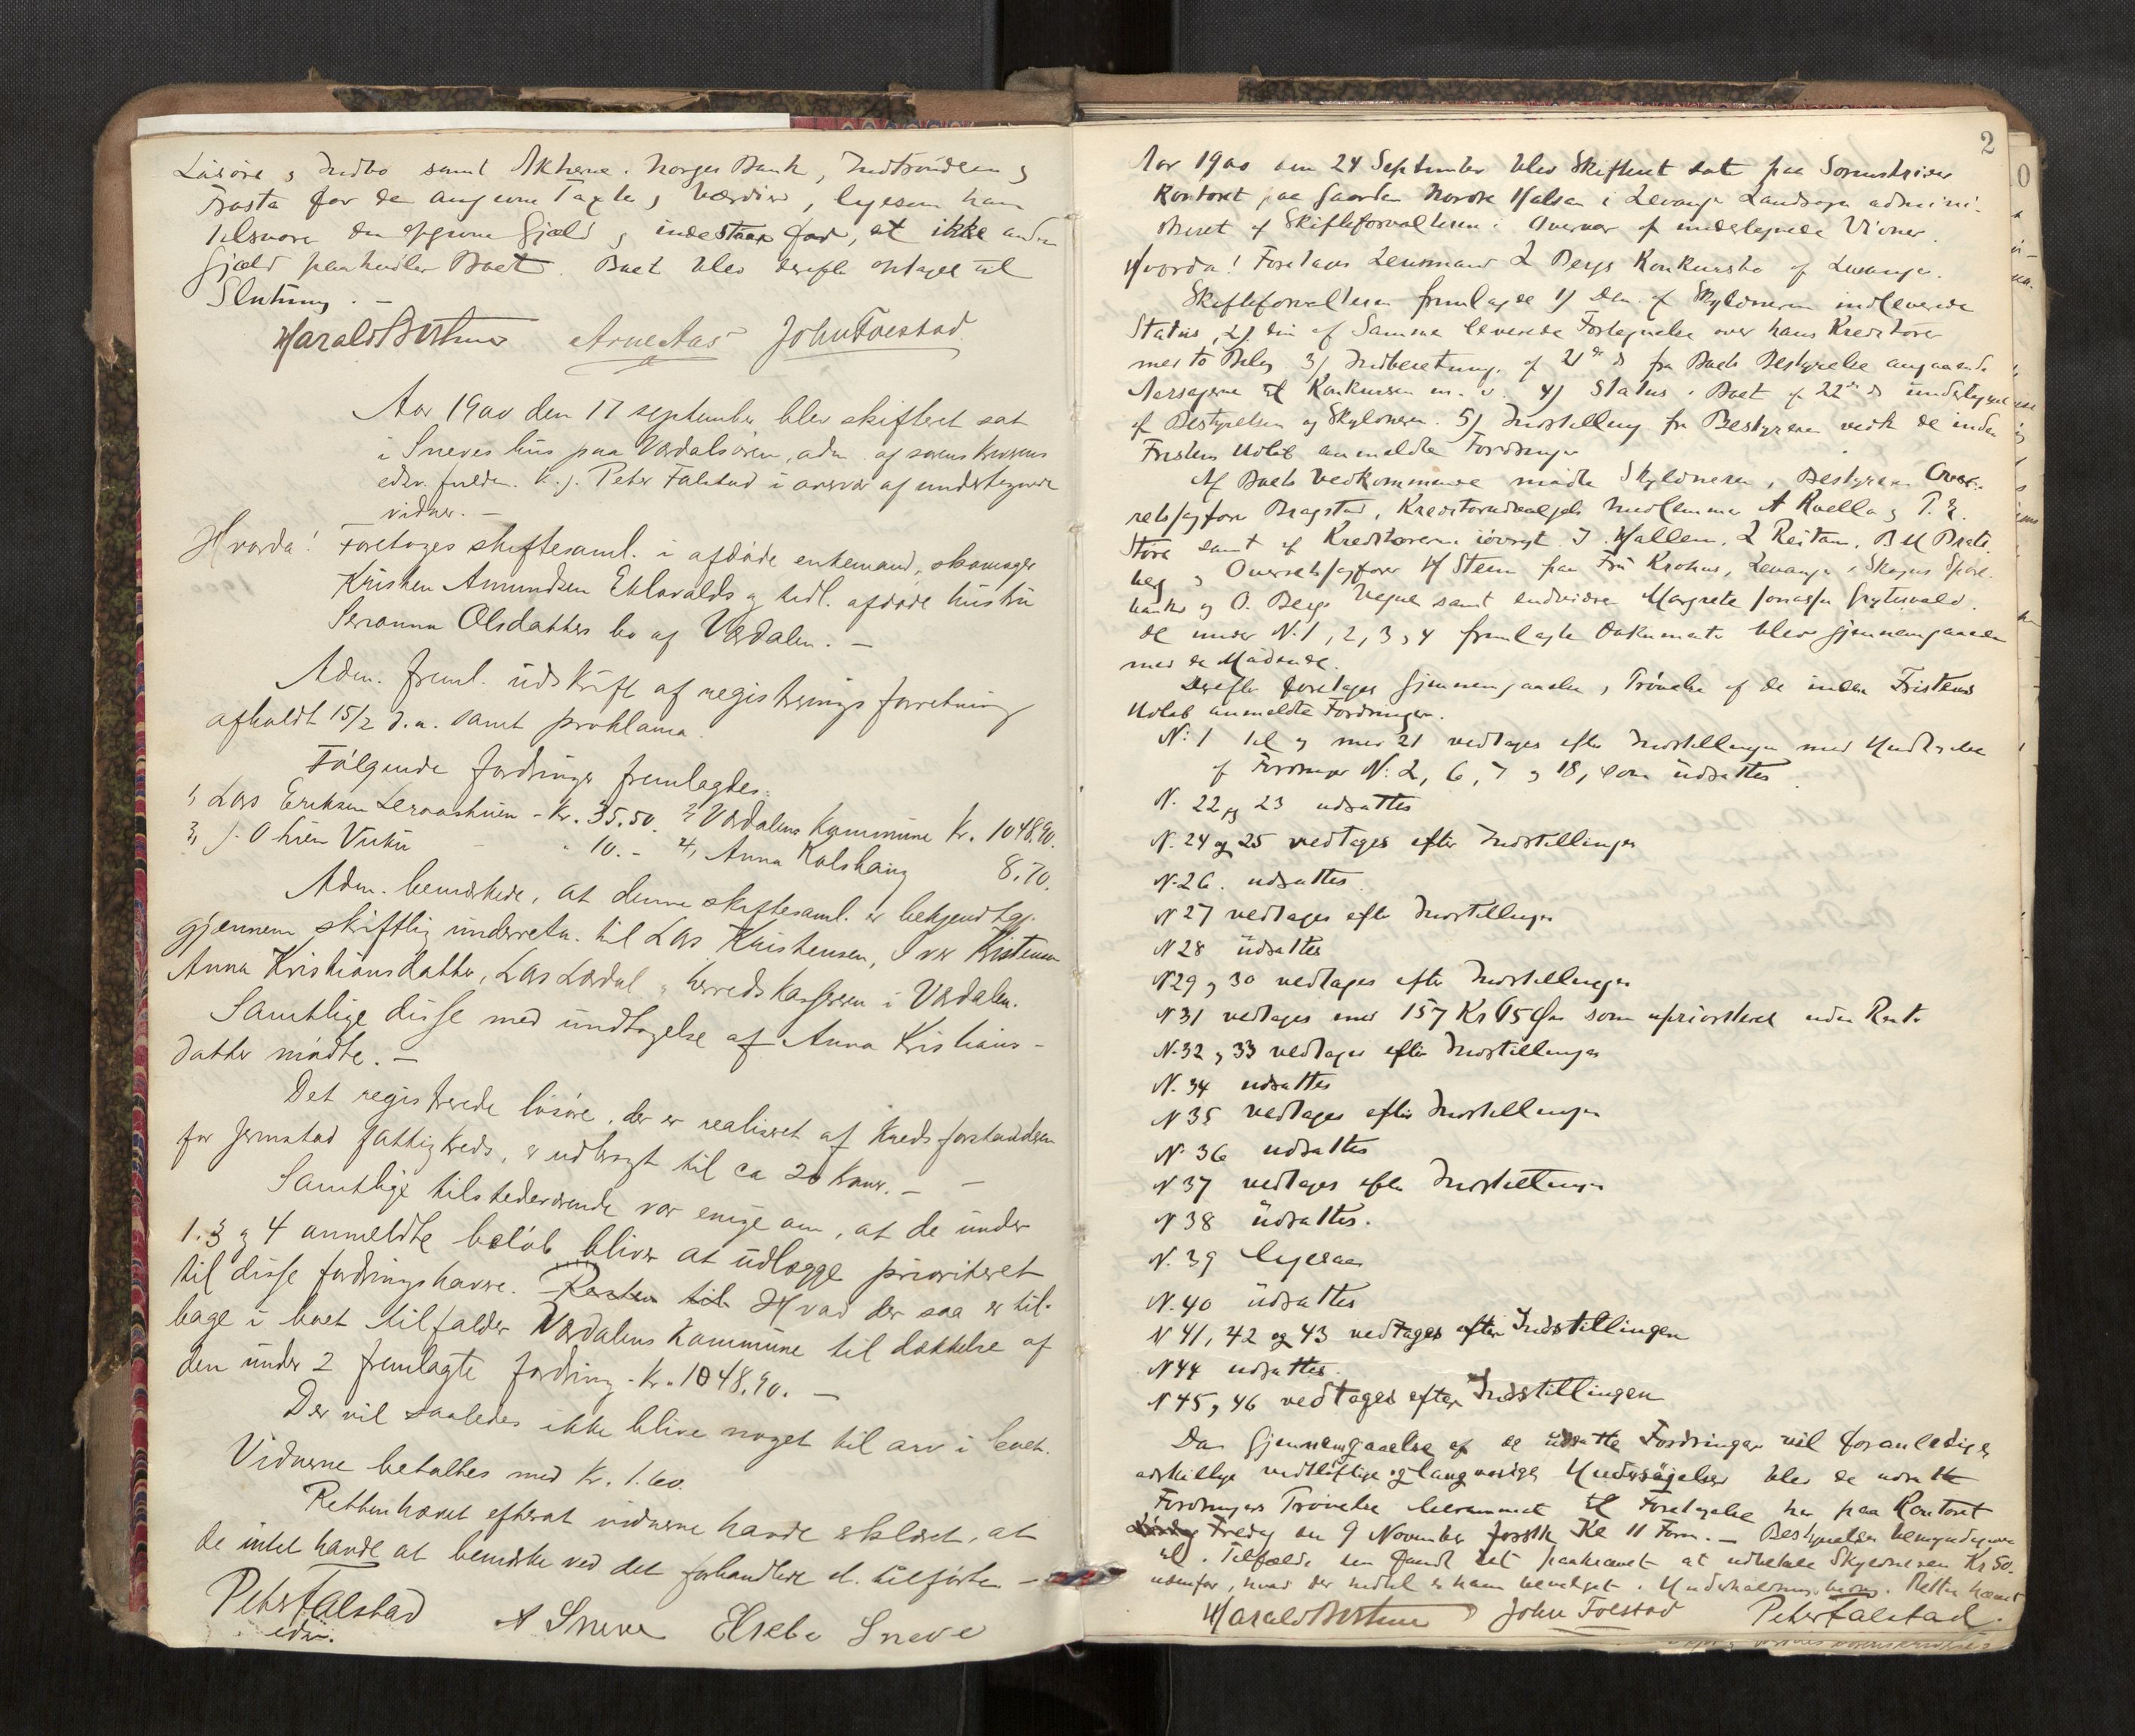 Løsøre og Indbo samt Aktierne i Norges Bank, Indtrøndelen og
Frosta for de angivne Taxter og Værdier, ligesom han
tilsvarer den opgivne Gjæld og indestaar for, at ikke anden
Gjæld paahviler Boet. Boet blev derefter optaget til
Slutning. –
Harald Bothner Arne Aas John Foestad
Aar 1900 den 17 september blev skifteret sat
i Sneves hus paa Værdalsøren, adm. af sorenskriverens
edsv. fuldm. k. j. Peter Falstad i overvær af undertegnede
vidner. –
Hvorda! Foretoges skiftesaml. i afdøde enkemand, skomager
Kristen Amundsen Eklovalds og tidl. afdøde hustru
Seranna Olsdatters bo af Værdalen. –
Adm. freml. udskrift af registreringsforretning
afholdt 15/2 d.a. samt proklama.
Følgende fordringer fremlagdes:
1, Lars Eriksen - Kr. 35.50. 2, Værdalens kommune kr. 1048.90.
3, J. O Lien Vuku - " 10. - 4, Anna Kolshaug 8.70.
Adm. bemærkede, at denne skiftesaml. er bekjendtgj.
gjennem skriftlig underretn. til Lars Kristensen, Iver Kristensen
Anna Kristiansdatter, Lars Lerdal og herredskassereren i Værdalen.
Samtlige disse med undtagelse af Anna Kristians-
datter mødte. –
Det registrerede løsøre, der er realiseret af kredsforstanderen
for fattigkreds, er udbragt til ca 20 kroner. – –
Samtlige tilstedeværende var enige om, at de under
1. 3 og 4 anmeldte beløb bliver at udlægge prioriteret
til disse fordringshavere. Resten til Hvad der saa er til-
bage i boet tilfalder Værdalens kommune til dækkelse af
den under 2 fremlagte fordring - kr. 1048.90. –
Der vil saaledes ikke blive noget til arv i boet.
Vidnerne betaltes med kr. 1.60.
Retten hævet efterat vidnerne havde erklæret, at
de intet havde at bemærke ved det forhandlede el. tilførte –
Peter Falstad A Sneve Elseba Sneve
edsv.
2
Aar 1900 den 24 September blev Skifteret sat paa Sorenskriver
kontoret paa Gaarden Nordre Halsan i Levanger Landsogn admini-
streret af Skifteforvalteren i Overvær af undertegnede Vidner.
Hvorda! Foretages Lensmand L Bergs Konkursbo af Levanger.
Skifteforvalteren fremlagde 1) Den af Skyldneren indleverede
Status, 2) Den af Samme leverede Fortegnelse over hans Kreditorer
med to Bilag 3) Indberetning af 21de ds fra Boets Bestyrelse angaaende
Aarsagerne til Konkursen m. v. 4) Status i Boet af 22de ds undertegnet
af Bestyrelsen og Skyldneren. 5) Indstilling fra Bestyreren vedk de inden
Fristens Udløb anmeldte Fordringer
Af Boets Vedkommende mødte Skyldneren, Bestyreren Over-
retssagfører Bragstad, Kreditorudvalgets Medlemmer A Roella og P. E.
Støre samt af Kreditorerne iøvrigt J. Hallem, L Reitan, B M
og Overretssagfører H Steen paa Fru Krohns, Levanger & Skogns Spare-
banks og O. Bergs Vegne samt endvidere Margrete
De under N. 1, 2, 3, og 4 fremlagte Dokumenter blev gjennemgaaede
med de Mødende.
Derefter foretoges Gjennemgaaelse og Prøvelse af de inden Fristens
Udløb anmeldte Fordringer.
No: 1 til og med 21 vedtages efter Indstillingen med Undtagelse
af Fordringer N. 2, 6, 7 og 18, som udsattes
N. 22 og 23 udsattes
N. 24 og 25 vedtages efter Indstillingen
N. 26. udsattes
N 27 vedtages efter Indstillingen
N 28 udsattes
N 29 og 30 vedtages efter Indstillingen
N 31 vedtages med 157 Kr 65 Øre som uprioriteret uden Rente
N. 32 og 33 vedtages efter Indstillingen
N. 34 udsattes
N 35 vedtages efter Indstillingen
N 36 udsattes
N 37 vedtages efter Indstillingen
N 38 udsattes.
N. 39 ligesaa
N. 40 udsattes
N 41, 42 og 43 vedtages efter Indstillingen
N 44 udsattes.
N 45, 46 vedtages efter Indstillingen
Da Gjennemgaaelse af de udsatte Fordringer vil foranledige
adskillige vidtløftige og langvarige Undersøgelser blev de udsatte
Fordringers Prøvelse berammet til Foretagelse her paa Kontoret
Lørdag Fredag den 9 November førstk Kl 11 Form. – Bestyrelsen bemyndigedes
til i Tilfælde den fandt det paakrævet at udbetale Skyldneren Kr 50.
udenfor, hvad der hidtil er ham bevilget i Underholdningsbidrag. Retten hævet
Harald Bothner John Foestad Peter Falstad.